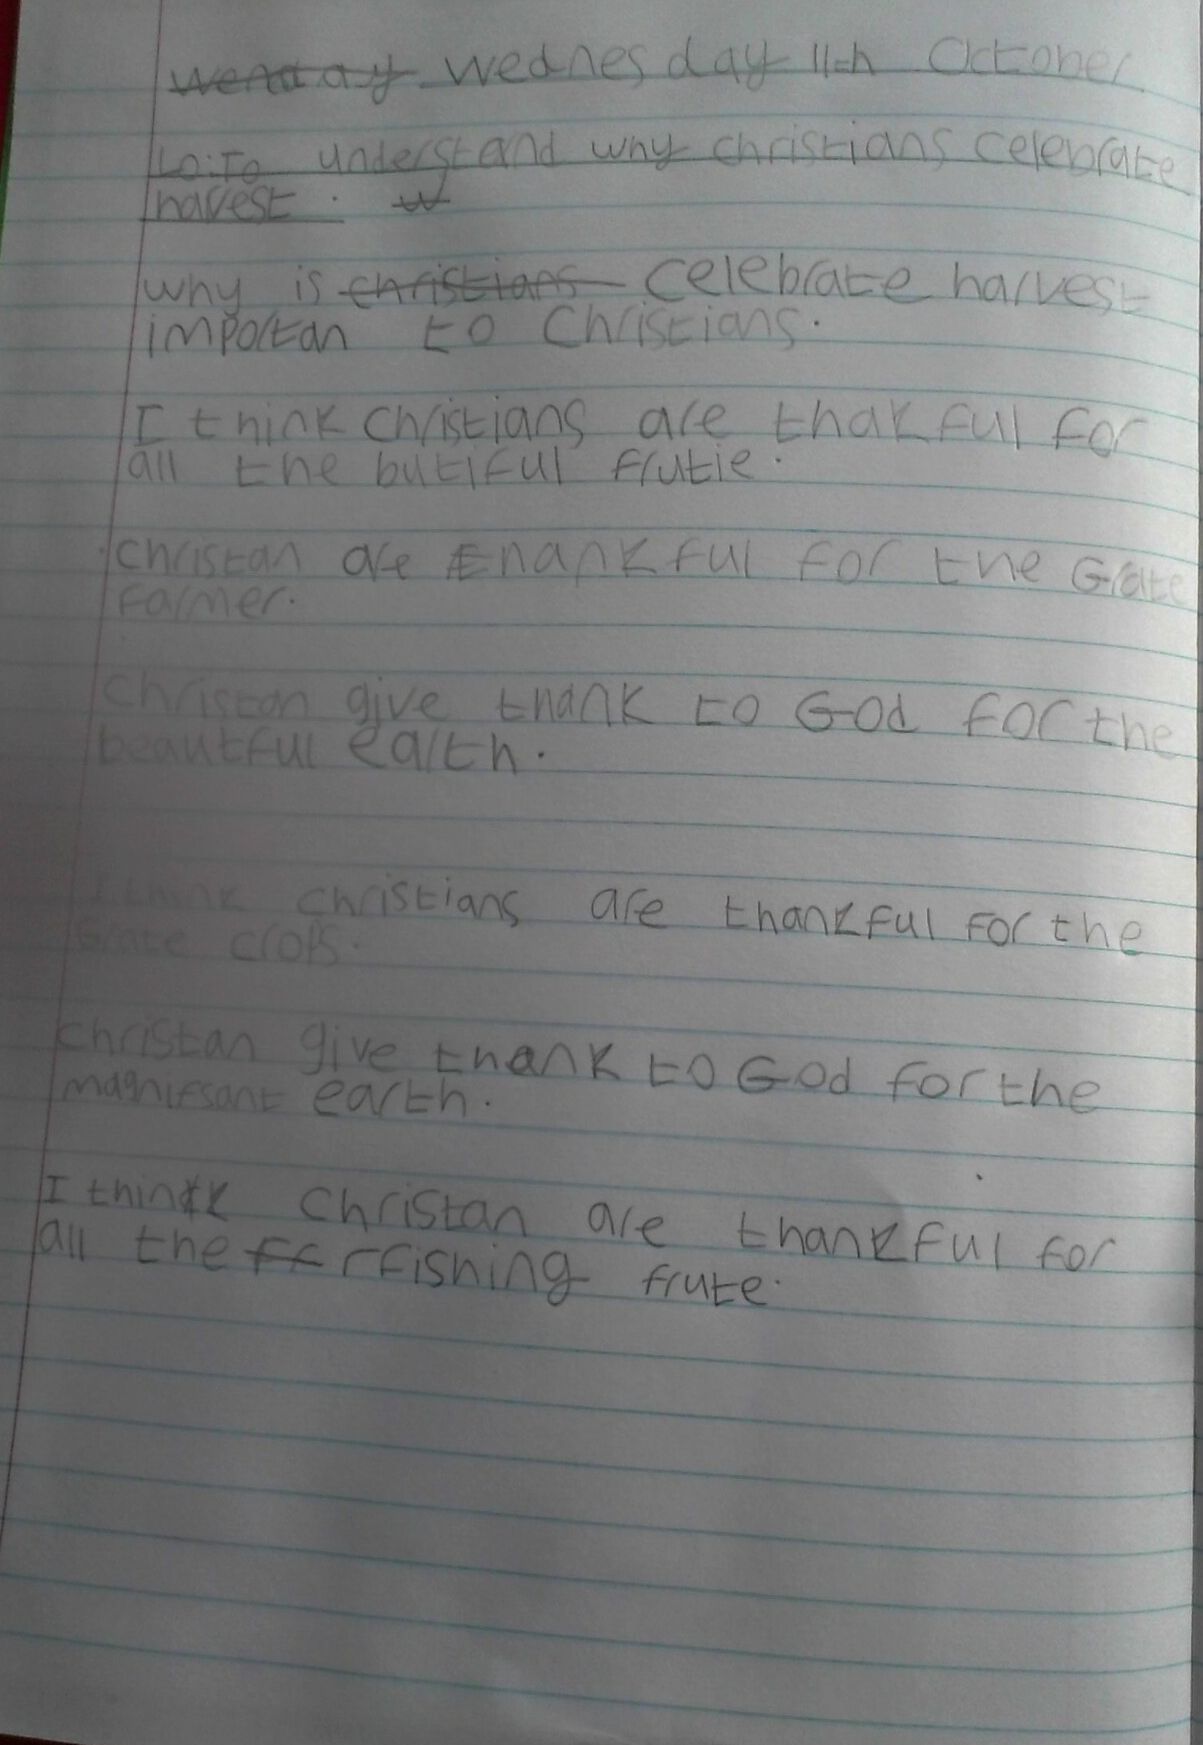 Wednesday 11th October
LO: To understand why christians celebrate
harvest.
why is celebrate harvest
importan to Christians.
I think Christians are thakful for
all the butiful frutie.
Christan are thankful for the Grate
Farmer.
Christan give thank to God for the
beautful earth.
I think christians are thankful for the
Grate crops.
Christan give thank to God for the
magnifsant earth.
I think Christan are thankful for
all the rfishing frute.